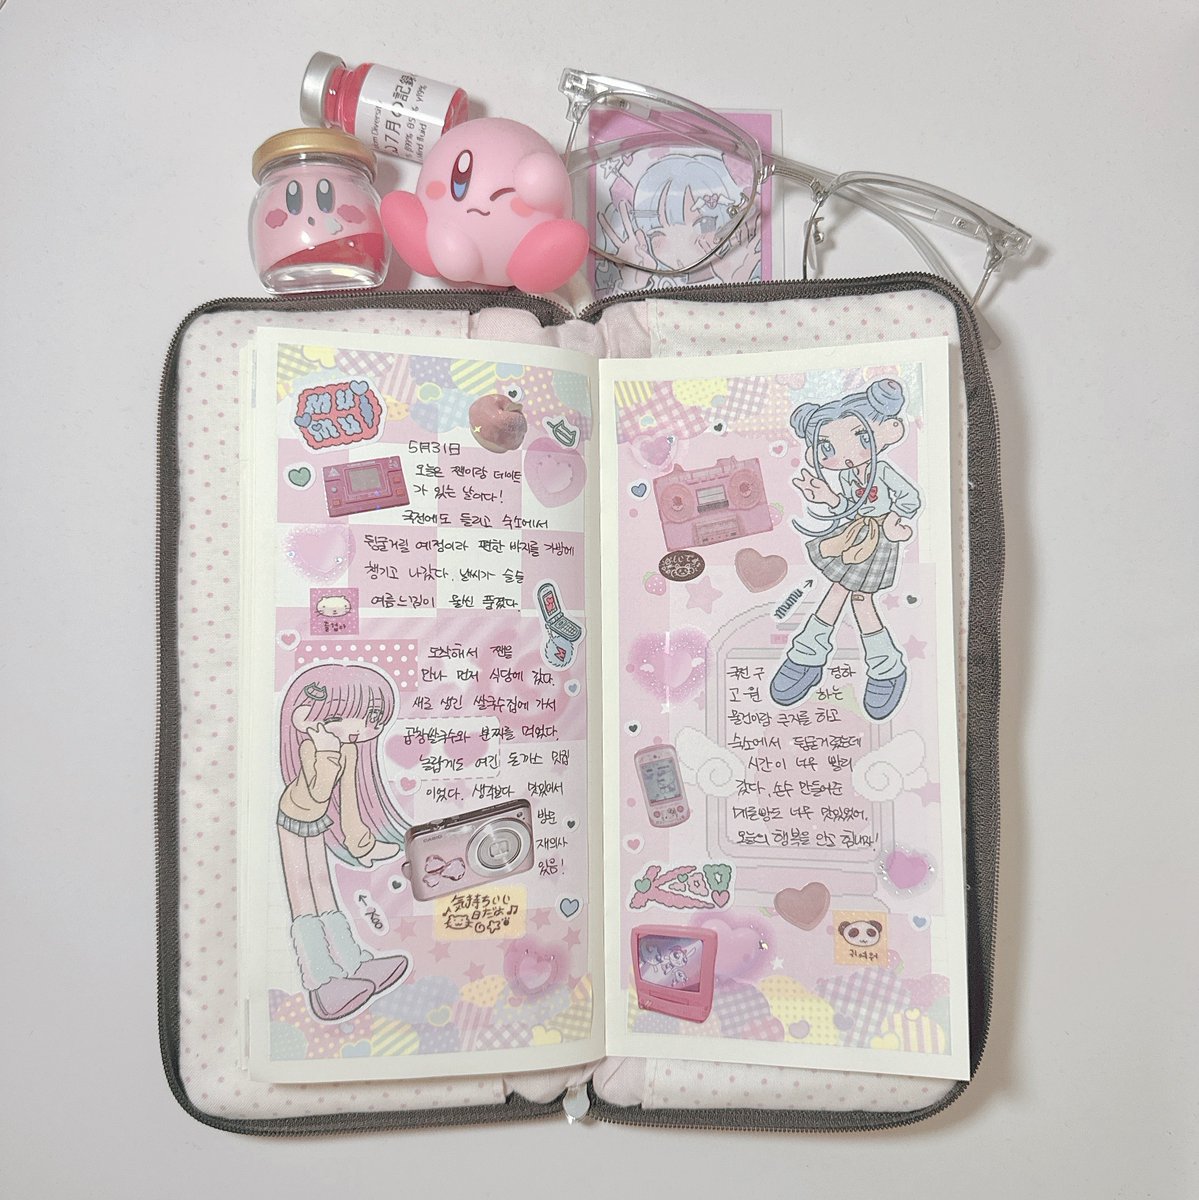 07月の記録
5月31日
오늘은 쩬이랑 데이트
가 있는 날이다!
국전에도 들리고 숙소에서
뒹굴거릴 예정이라 편한 바지를 가방에
챙기고 나갔다. 날씨가 슬슬
여름느낌이 물씬 풍겼다.
도착해서 쩬을
만나 먼저 식당에 갔다.
새로 생긴 쌀국수집에 가서
곱창쌀국수와 분짜를 먹었다.
놀랍게도 여긴 돈까스 맛집
이었다. 생각보다 맛있어서
방문
재의사
있음!
CASIO
気持ちいい
日だよ♫
mumu
국전 구 경하
고 원 하는
물건이랑 굿즈를 하고
숙소에서 뒹굴거렸는데
시간이 너무 빨리
갔다. 손수 만들어준
마들렌도 너무 맛있었어.
오늘의 행복을 안고 힘내자!
귀여워